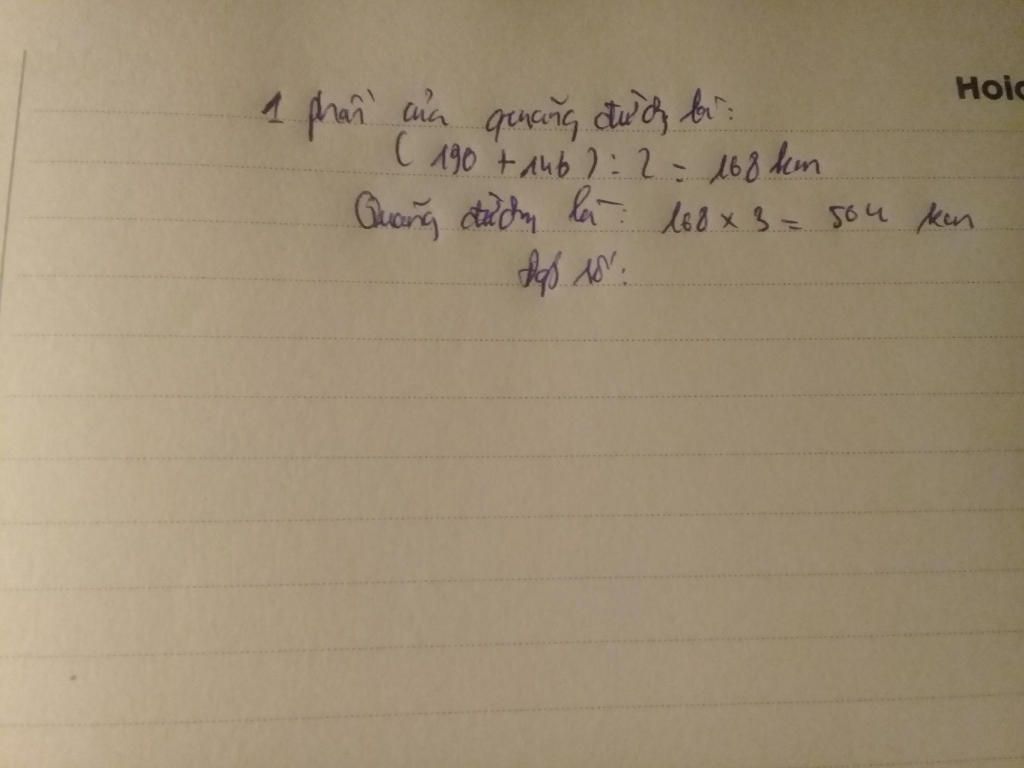 Hoic
1 phần của quãng đường là:
( 190 + 146 ) : 2 = 168 km
Quãng đường là: 168 x 3 = 504 km
Đáp số: